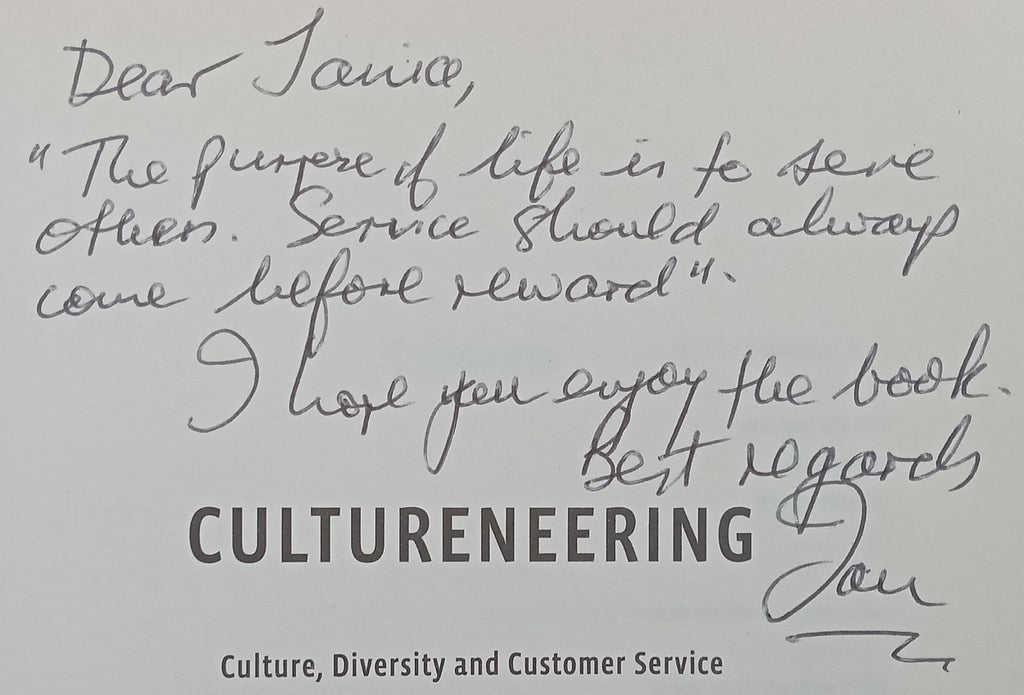 Dear Janice,
"The purpose of life is to serve
others. Service should always
come before reward".
I hope you enjoy the book.
Best regards
CULTURENEERING
Culture, Diversity and Customer Service